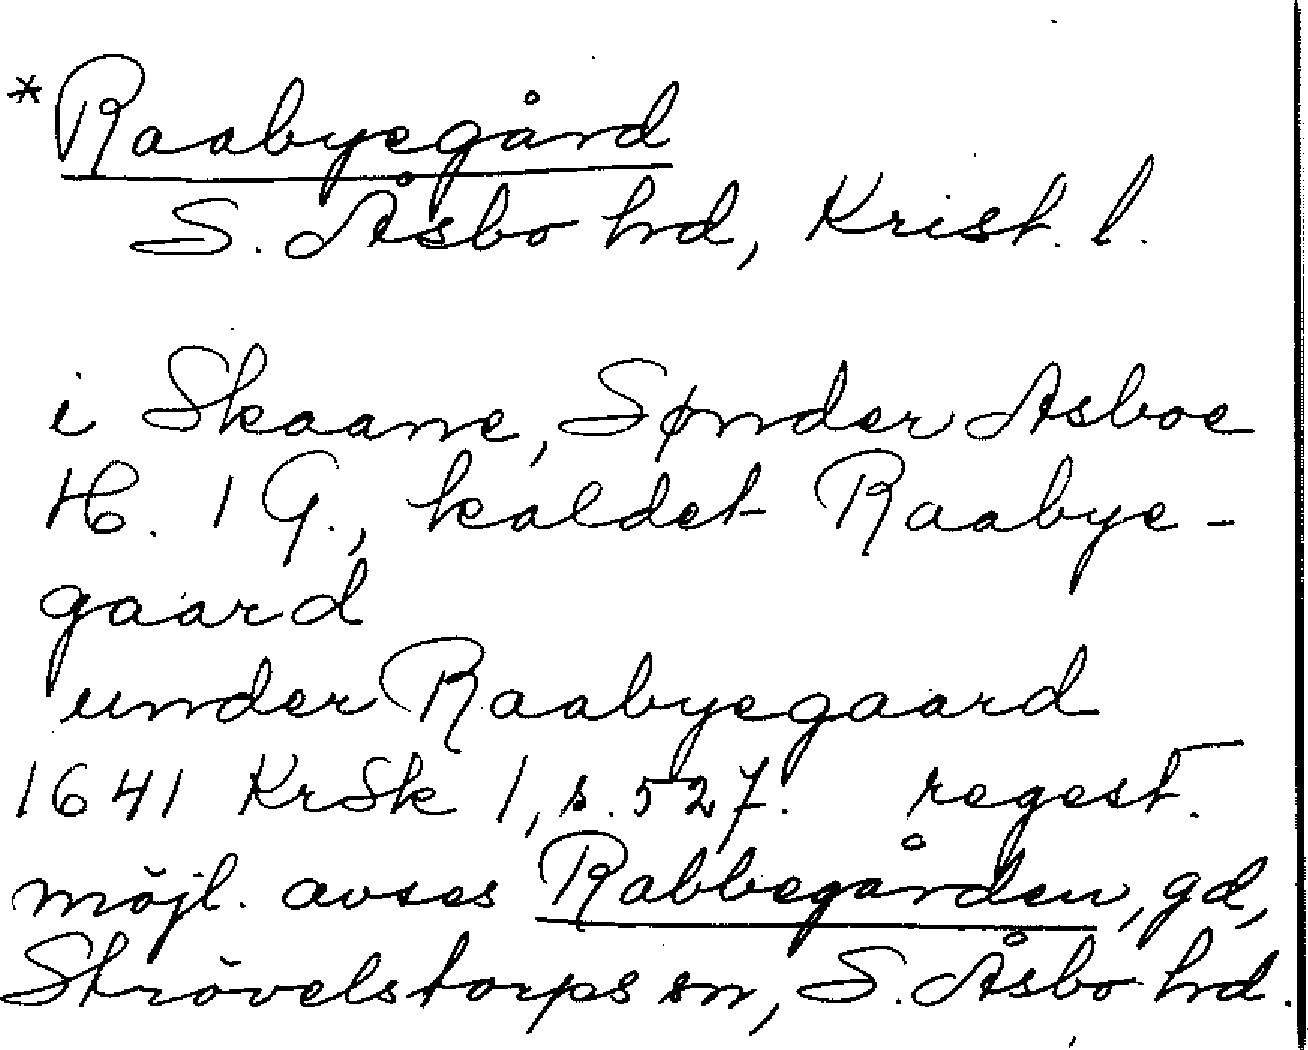 *Raabyegård
S. Åsbo hd, Krist. l.
i Skaane, Sønder Asboe
H. 1 G., kaldet Raabye-
gaard
under Raabyegaard
1641 KrSk 1, s. 527. regest.
möjl. avses Rabbegården, gd,
Strövelstorps sn, S. Åsbo hd.